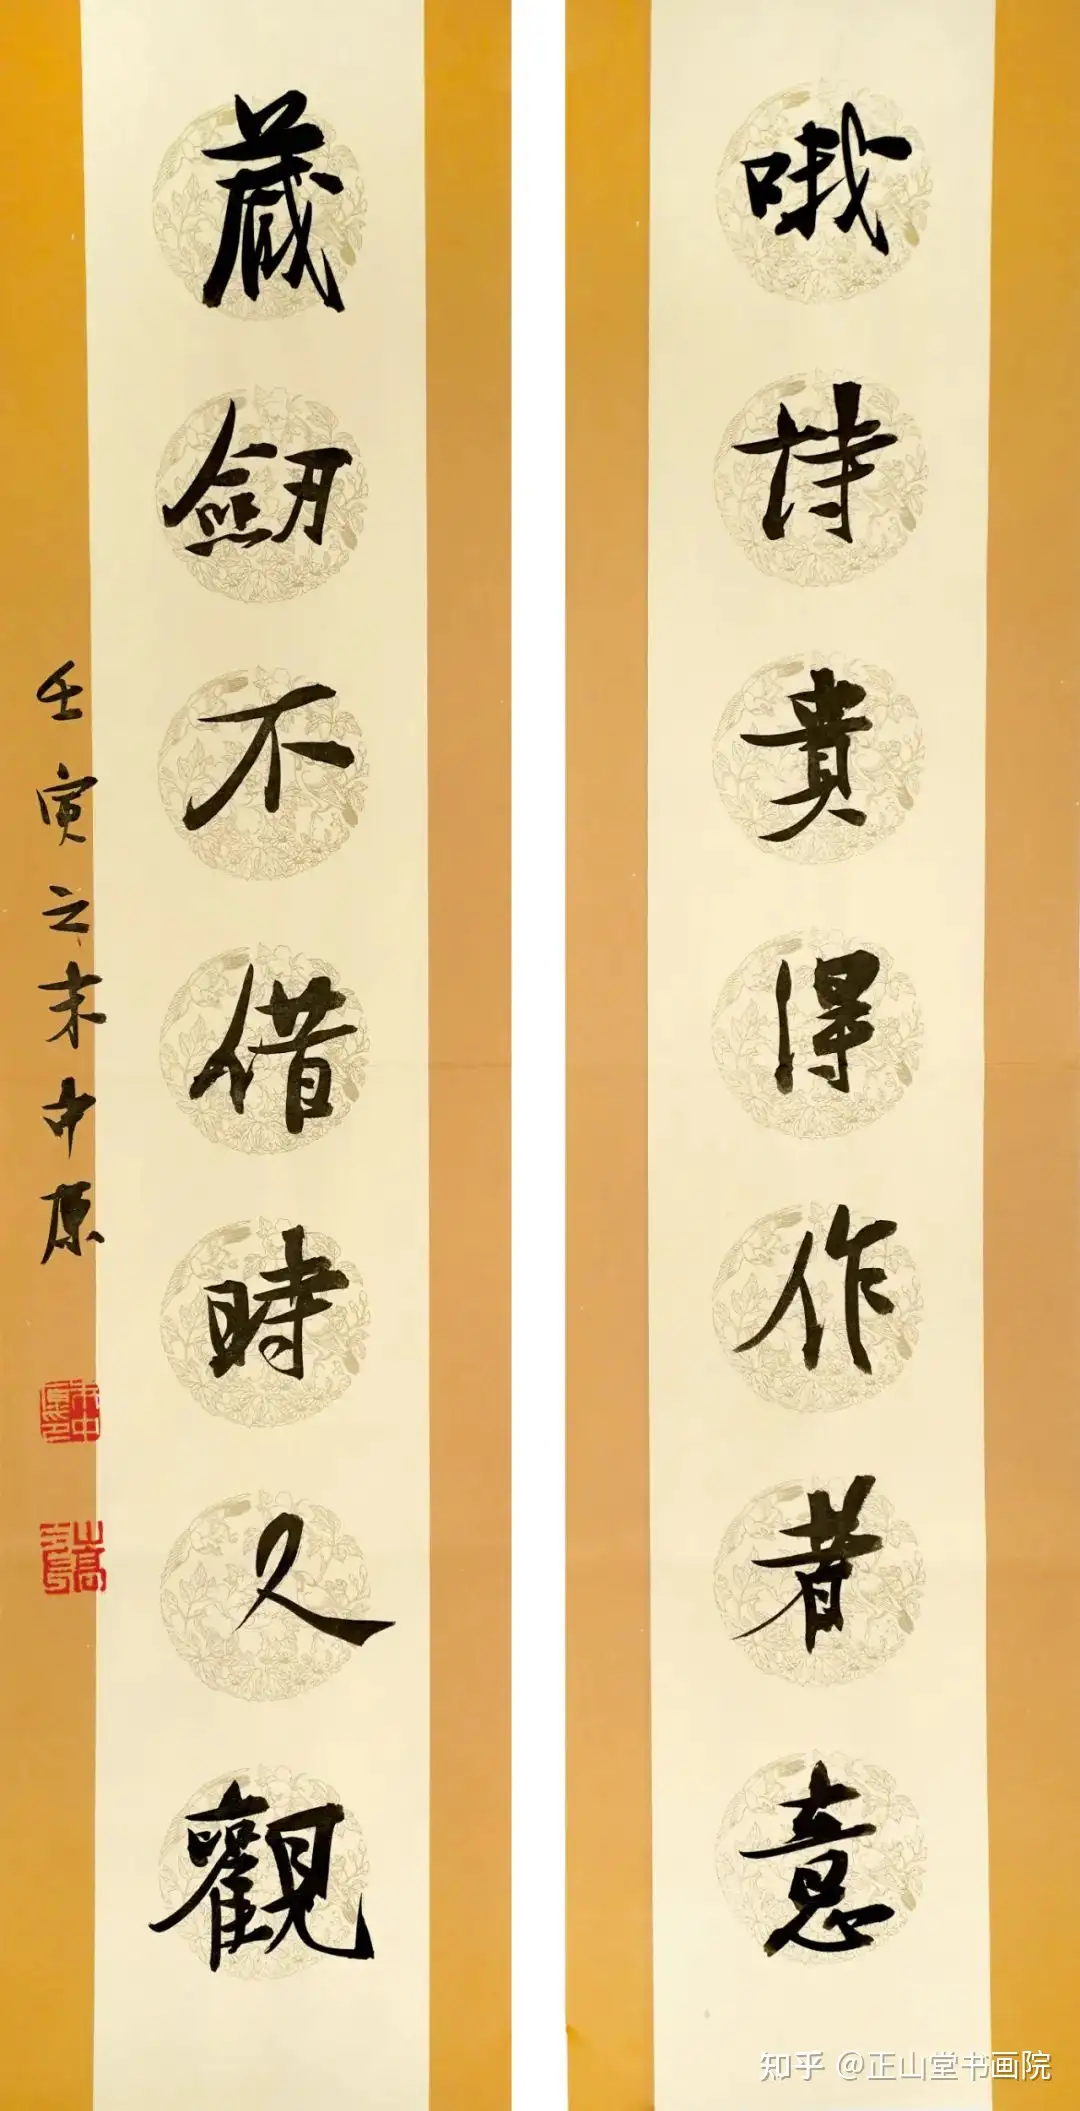 哦詩貴得作者意
藏劒不借時人觀
壬寅之末中原
知乎 @正山堂书画院